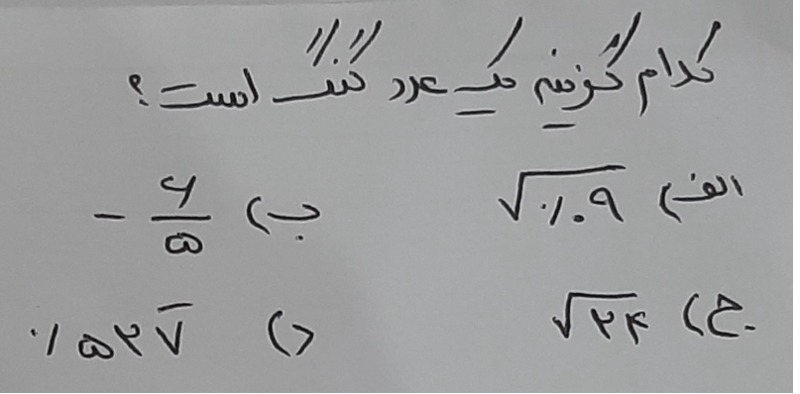 کدام گزینه یک عدد گنگ است؟
الف) √۰/۰۹ ب) -۶/۵
ج) √۲۴ د) ۰/۵۲۷̅